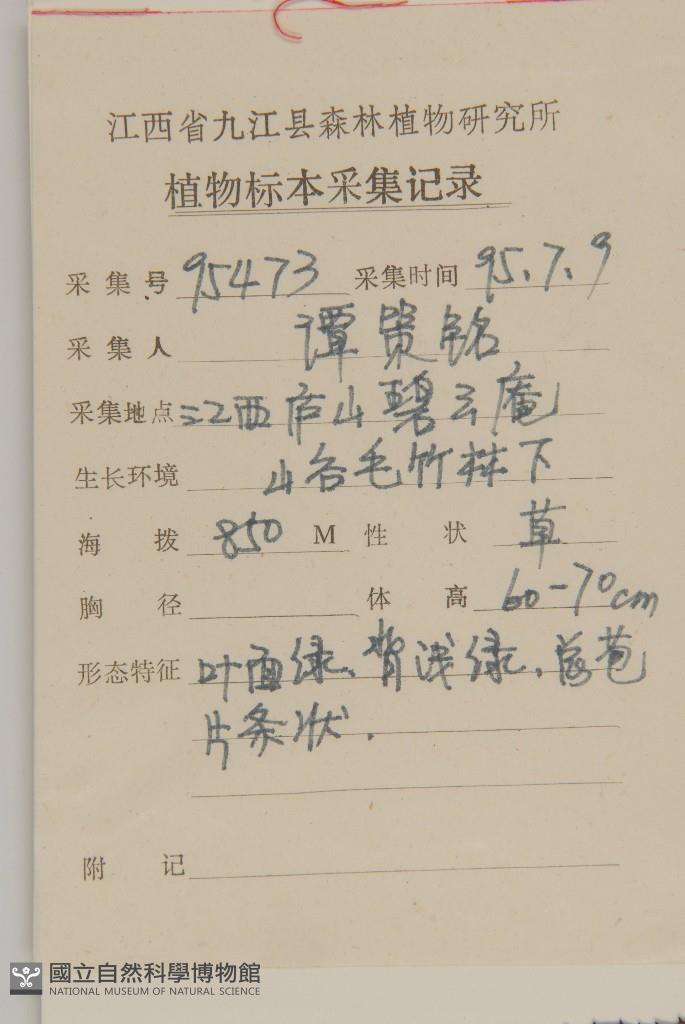 江西省九江县森林植物研究所
植物标本采集记录
采集号 95473 采集时间 95.7.9
采集人 谭策铭
采集地点 江西庐山碧云庵
生长环境 山谷毛竹林下
海拨 850 M 性状 草
胸径 体高 60-70cm
形态特征 叶面绿、背浅绿、总苞
片条状.
附记
國立自然科學博物館
NATIONAL MUSEUM OF NATURAL SCIENCE